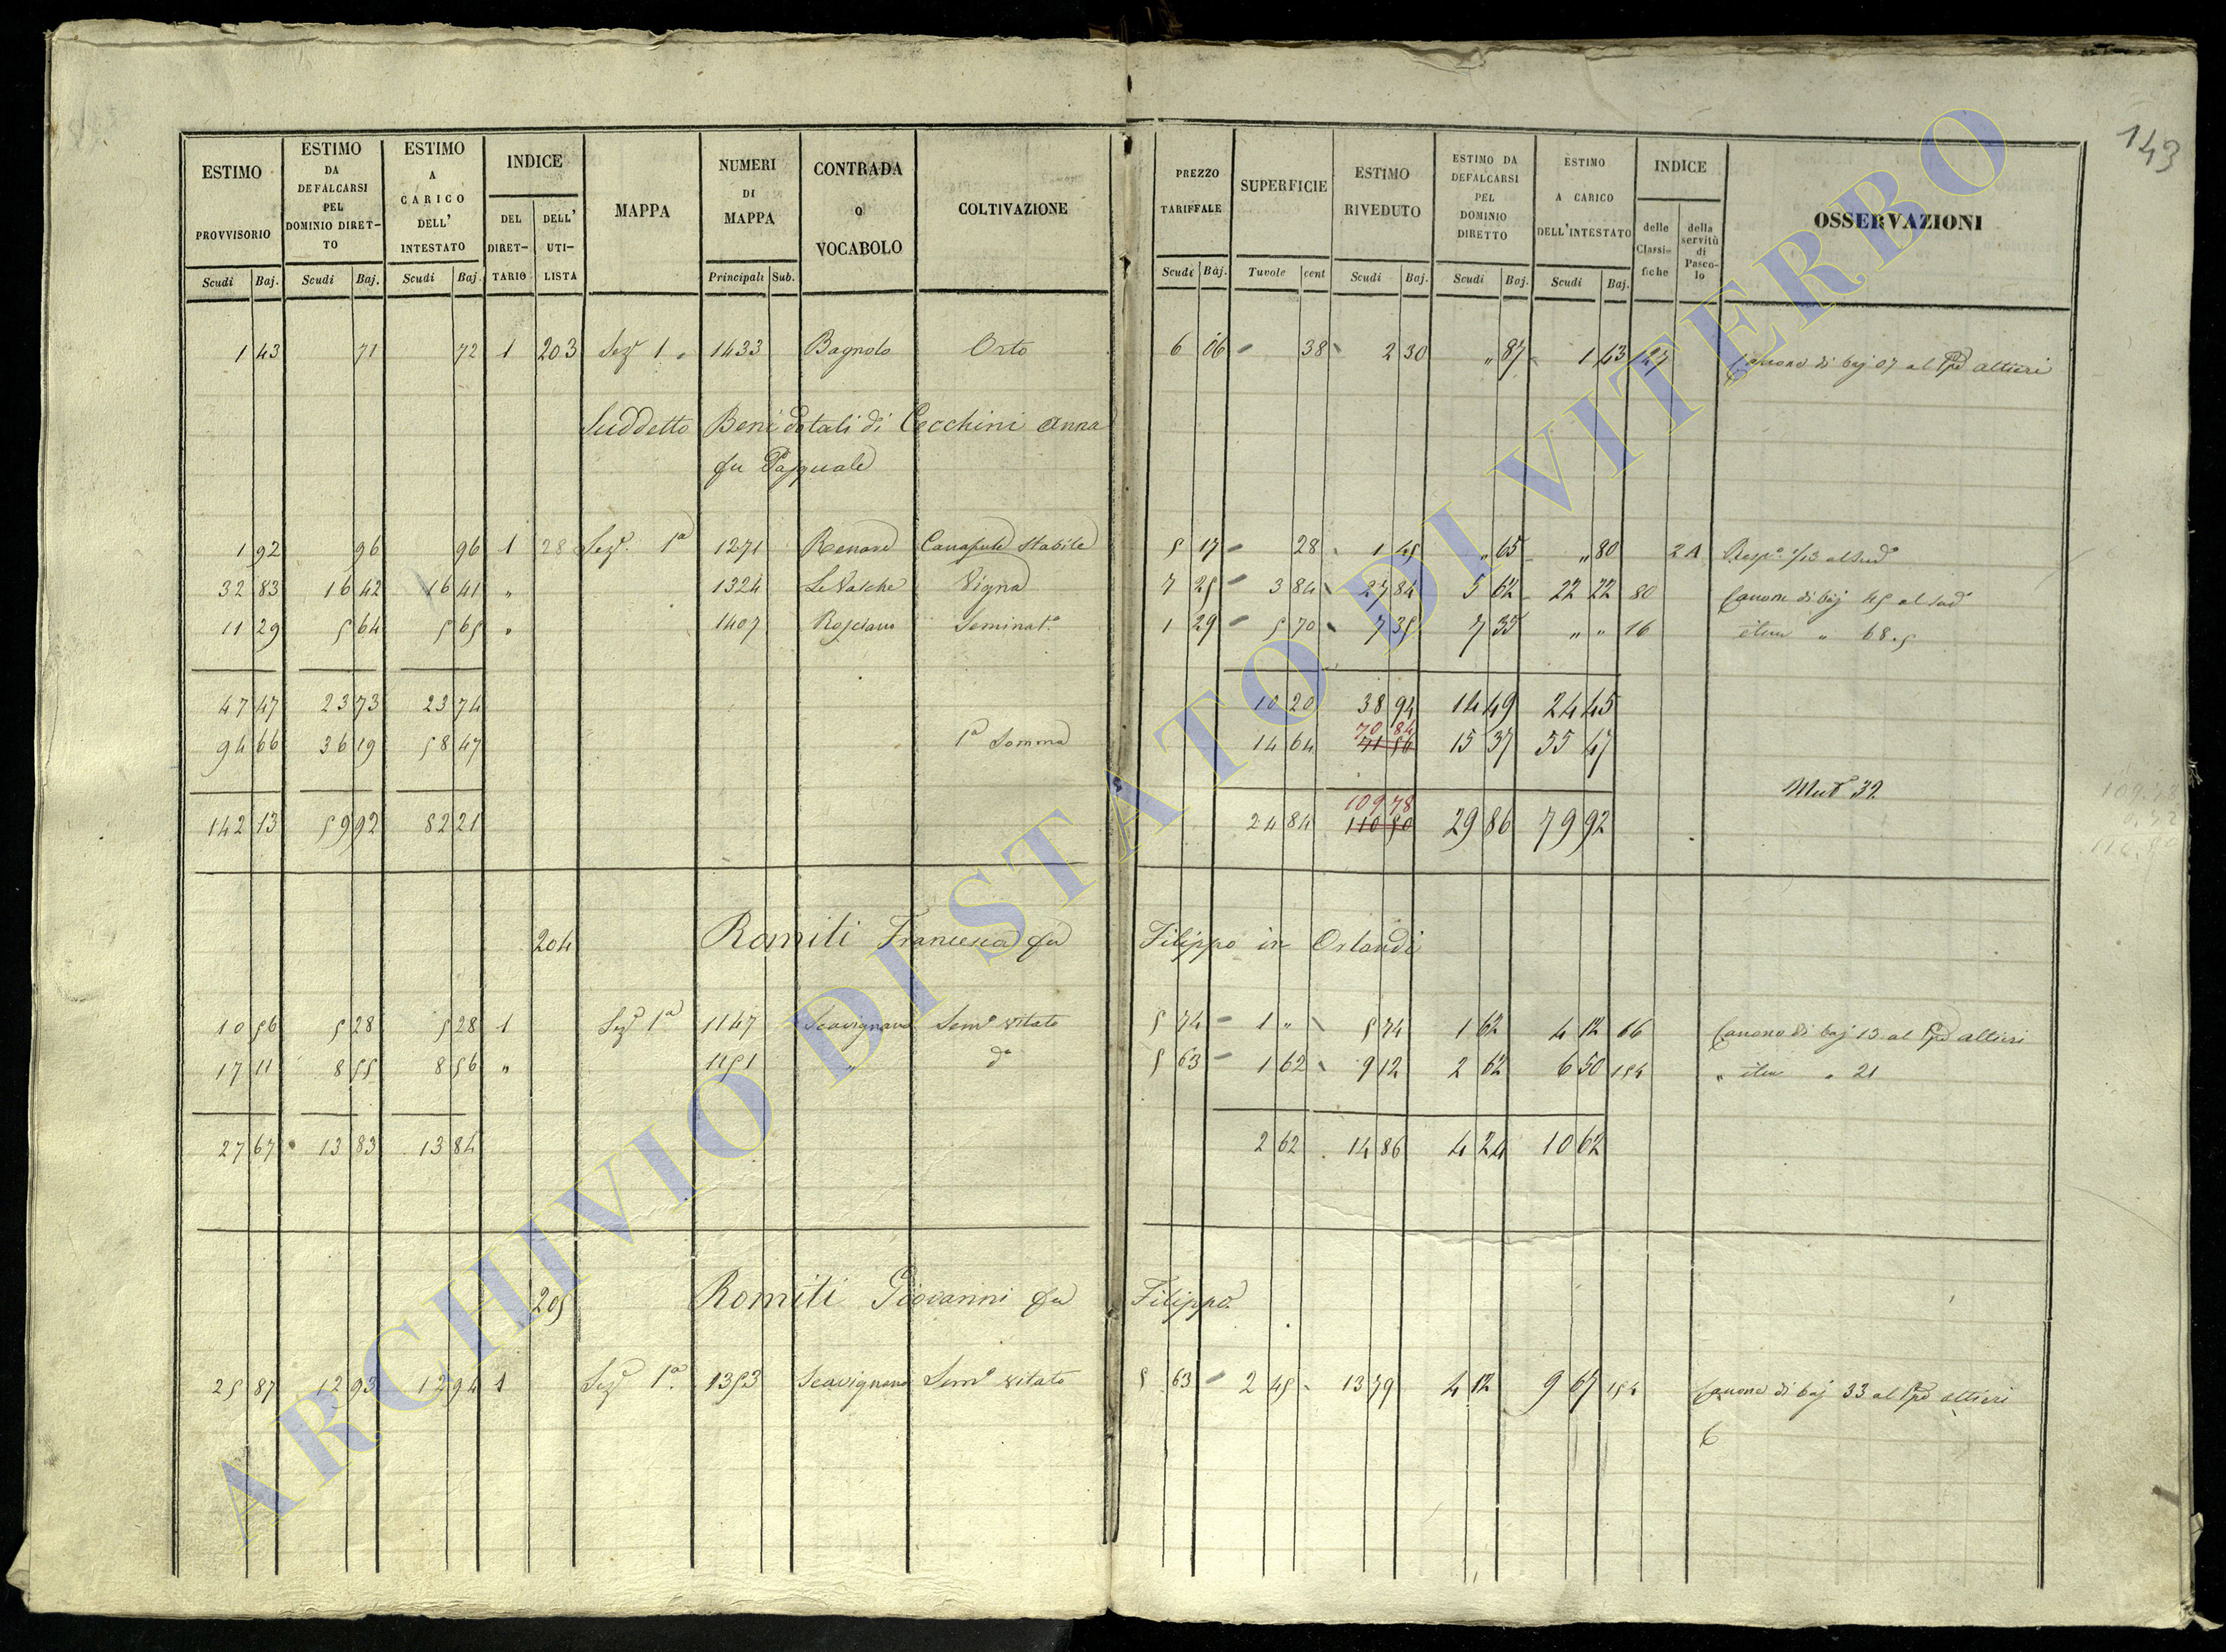 143
ESTIMO PROVVISORIO Scudi Baj.
ESTIMO DA DEFALCARSI PEL DOMINIO DIRETTO Scudi Baj.
ESTIMO A CARICO DELL' INTESTATO Scudi Baj.
INDICE DEL DIRETTARIO DELL' UTILISTA
MAPPA
NUMERI DI MAPPA Principali Sub.
CONTRADA o VOCABOLO
COLTIVAZIONE
PREZZO TARIFFALE Scudi Baj.
SUPERFICIE Tavole cent
ESTIMO RIVEDUTO Scudi Baj.
ESTIMO DA DEFALCARSI PEL DOMINIO DIRETTO Scudi Baj.
ESTIMO A CARICO DELL'INTESTATO Scudi Baj.
INDICE delle Classifiche della servitù di Pascolo
OSSERVAZIONI
1 43 71 72 1 203 Sez.e 1 " 1433 Bagnolo Orto 6 06 38 2 30 " 87 1 43 127 Canone di baj 07 al Ppe Altieri
Suddetto Beni dotali di Cecchini Anna
fu Pasquale
1 92 96 96 1 28 Sez.e 1a 1271 Renaro Canapule stabile 5 17 28 1 45 " 65 " 80 2A
32 83 16 42 16 41 " 1324 Le Vasche Vigna 7 25 3 84 27 84 5 62 22 22 80 Canone di baj 45 al sud.o
11 29 5 64 5 65 " 1407 Seminat.o 1 29 5 70 7 35 7 35 " " 16 item " 68.5
47 47 23 73 23 74 10 20 38 94 14 49 24 45
70 84
94 66 36 19 58 47 1a Somma 14 64 71 56 15 37 55 47
Mut.e 32
109 78
142 13 59 92 82 21 24 84 110 50 29 86 79 92
204 Romiti Francesca fu Filippo in Orlandi
10 56 5 28 5 28 1 Sez.e 1a 1147 Scavignano Sem.o vitato 5 74 1 " 5 74 1 62 4 12 66 Canone di baj 13 al Ppe Altieri
17 11 8 55 8 56 " 1151 " d.o 5 63 1 62 9 12 2 62 6 50 154 " item " 21
27 67 13 83 13 84 2 62 14 86 4 24 10 62
205 Romiti Giovanni fu Filippo
25 87 12 93 12 94 1 Sez.e 1a 1353 Scavignano Sem.o vitato 5 63 2 45 13 79 4 12 9 67 154 Canone di baj 33 al Ppe Altieri
6
ARCHIVIO DI STATO DI VITERBO